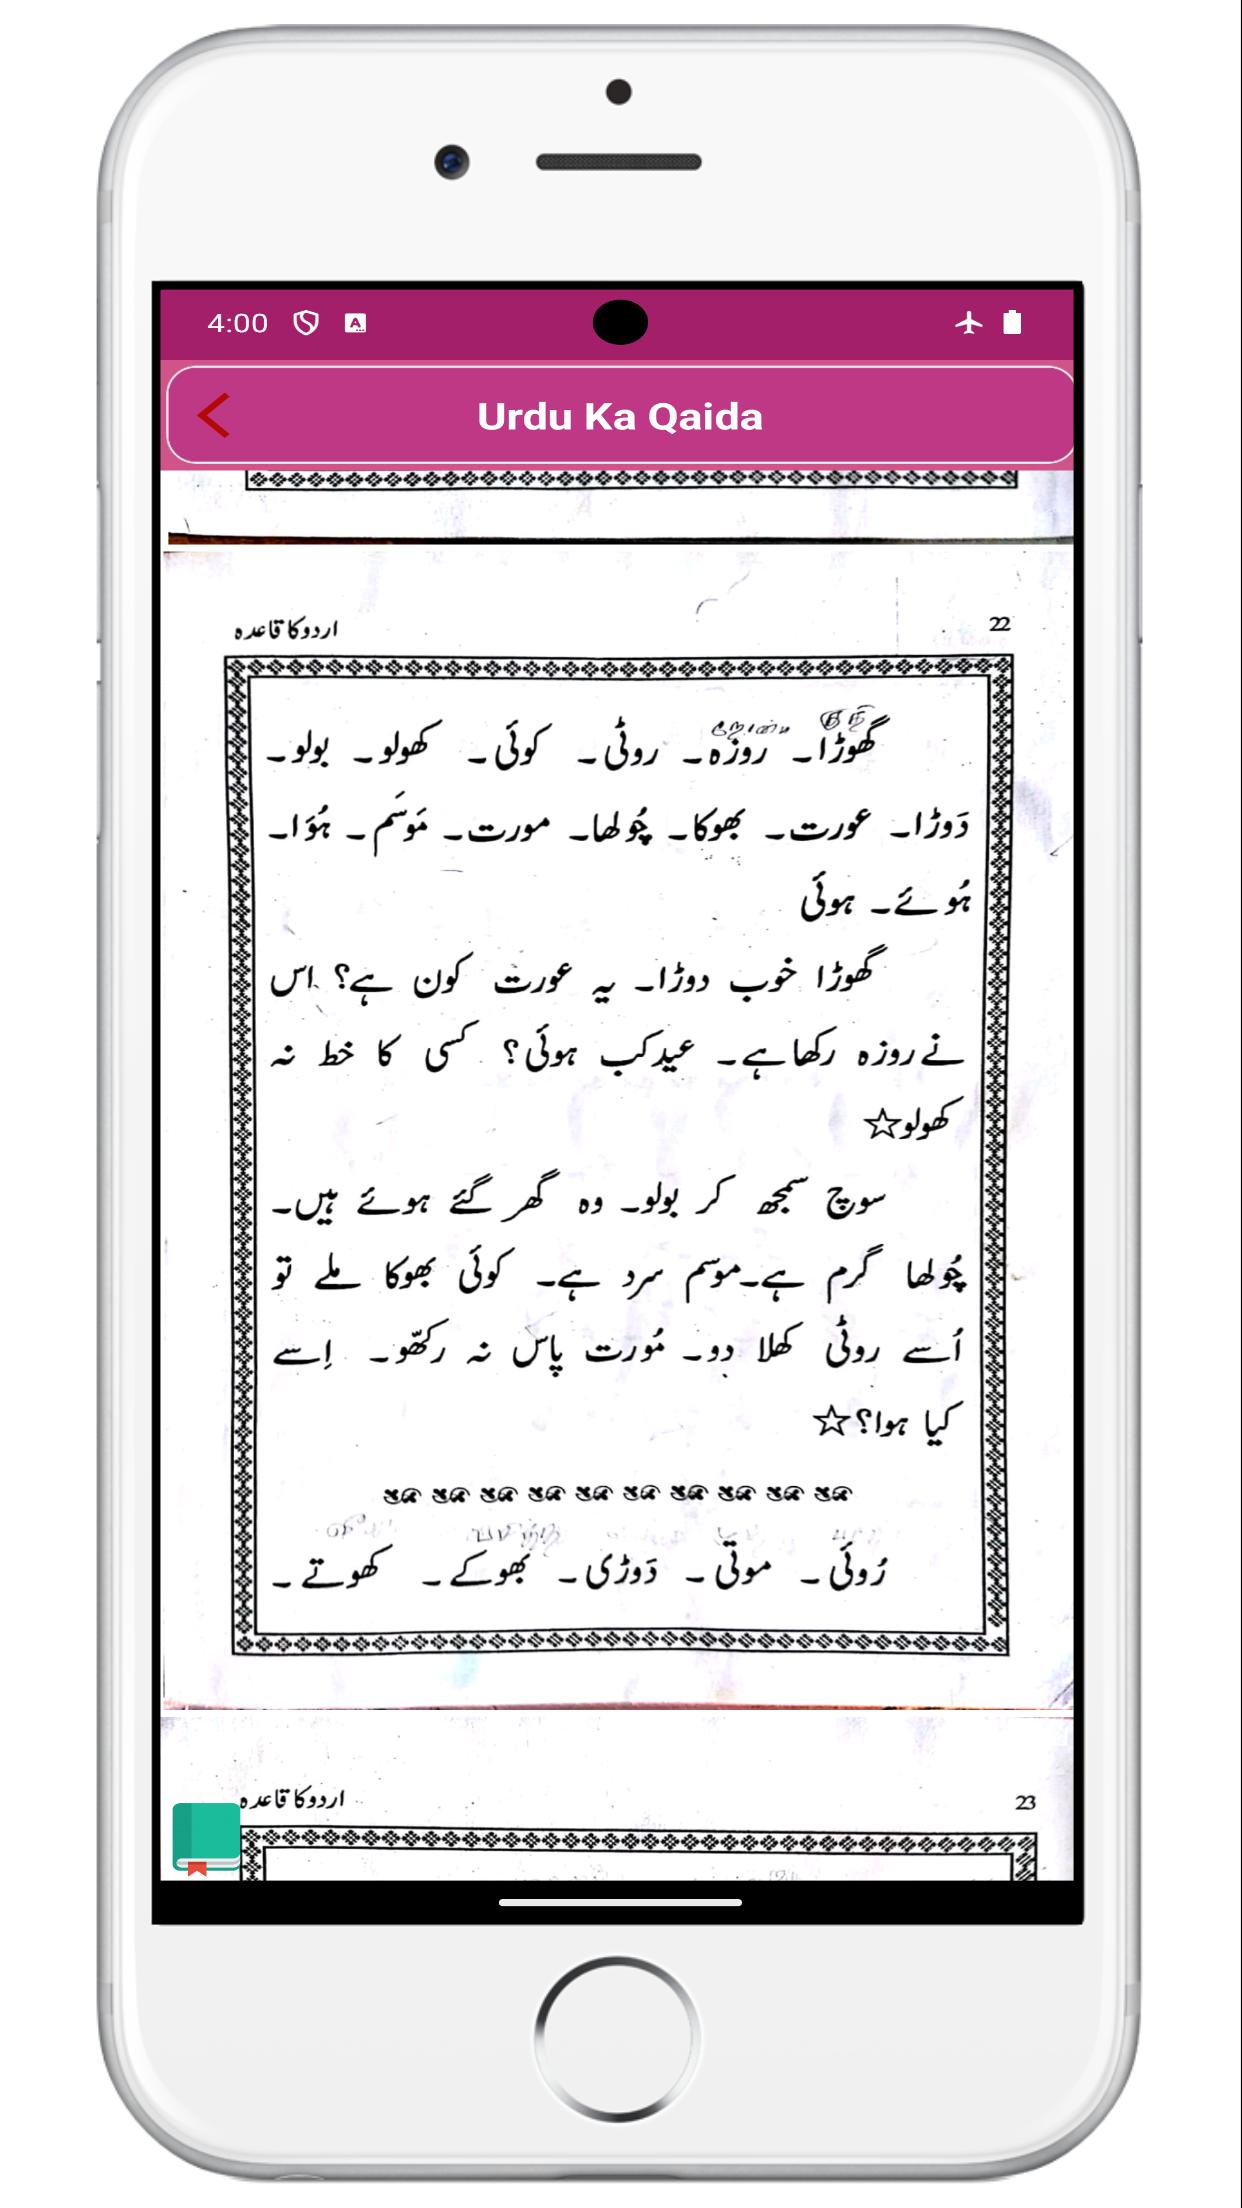 4:00
Urdu Ka Qaida
22 اردو کا قاعدہ
گھوڑا۔ روزہ۔ روٹی۔ کوئی۔ کھولو۔ بولو۔
دَوڑا۔ عورت۔ بھوکا۔ چُولھا۔ مورت۔ مَوسَم۔ ہُوَا۔
ہُوئے۔ ہوئی
گھوڑا خوب دوڑا۔ یہ عورت کون ہے؟ اس
نے روزہ رکھا ہے۔ عید کب ہوئی؟ کسی کا خط نہ
کھولو☆
سوچ سمجھ کر بولو۔ وہ گھر گئے ہوئے ہیں۔
چُولھا گرم ہے۔ موسم سرد ہے۔ کوئی بھوکا ملے تو
اُسے روٹی کھلا دو۔ مُورت پاس نہ رکھّو۔ اِسے
کیا ہوا؟☆
رُوئی۔ موتی۔ دَوڑی۔ بھوکے۔ کھوتے۔
23 اردو کا قاعدہ